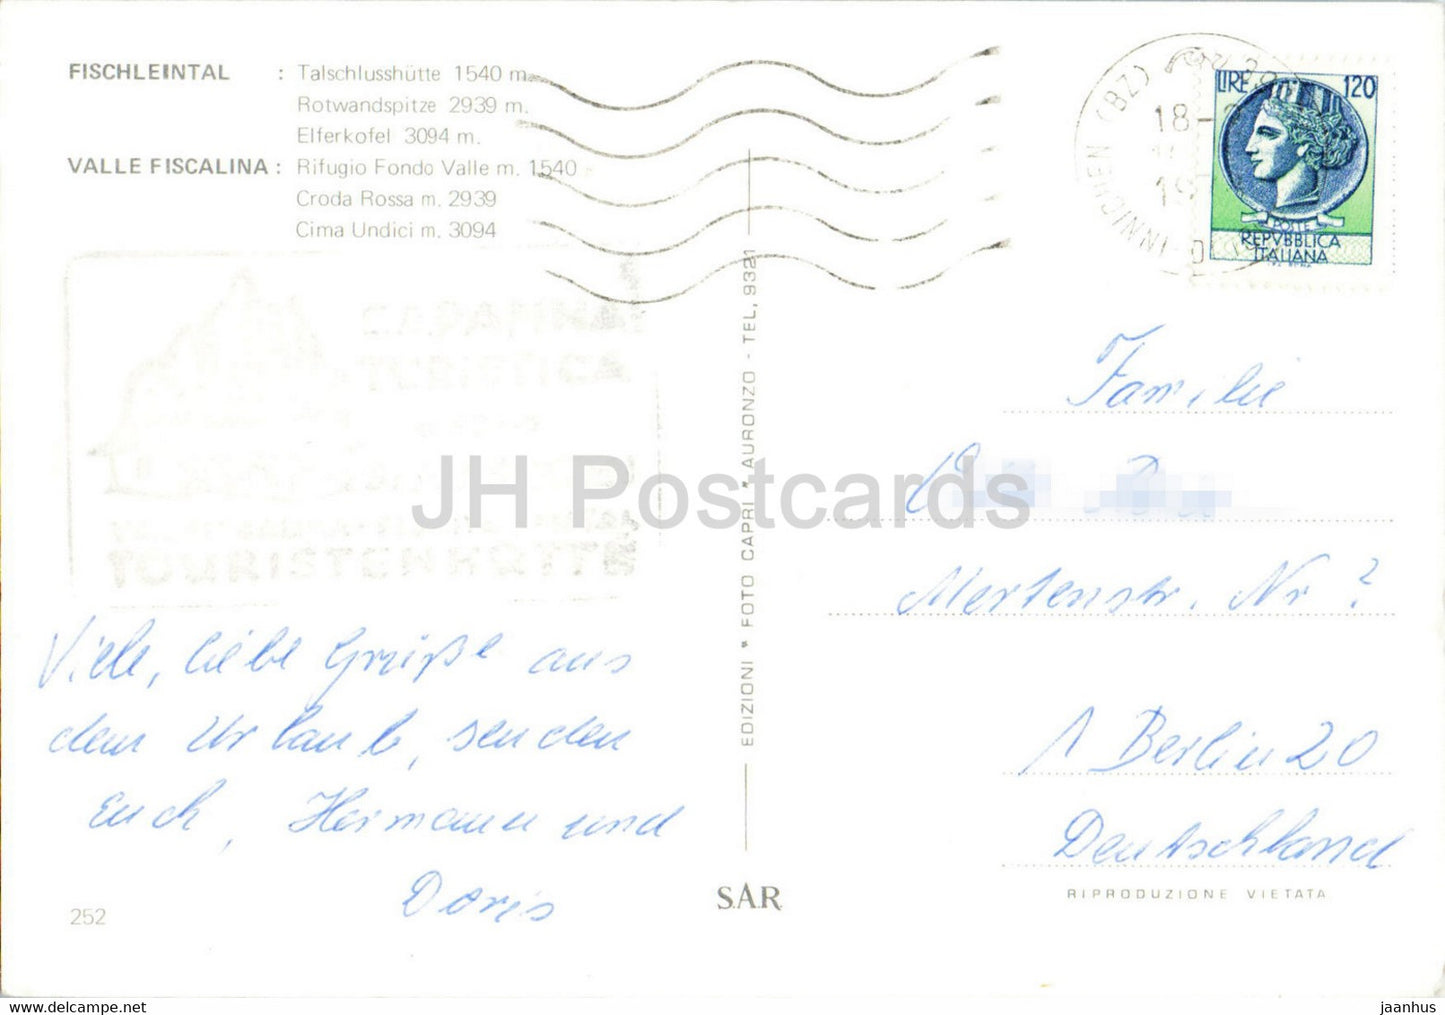 FISCHLEINTAL : Talschlusshütte 1540 m.
Rotwandspitze 2939 m.
Elferkofel 3094 m.
VALLE FISCALINA : Rifugio Fondo Valle m. 1540
Croda Rossa m. 2939
Cima Undici m. 3094
TURISTICA
TOURISTENHÜTTE
Viele, liebe Grüße aus
dem Urlaub, senden
Euch, Hermann und
Doris
252
EDIZIONI * FOTO CAPRI * AURONZO - TEL, 9321
S.A.R
INNICHEN (BZ)
18-
LIRE 120
POSTE
REPVBBLICA
ITALIANA
Familie
Mertenstr. Nr ?
1 Berlin 20
Deutschland
RIPRODUZIONE VIETATA
JH Postcards
hippostcard.com/store/jaanhus
jaanhus